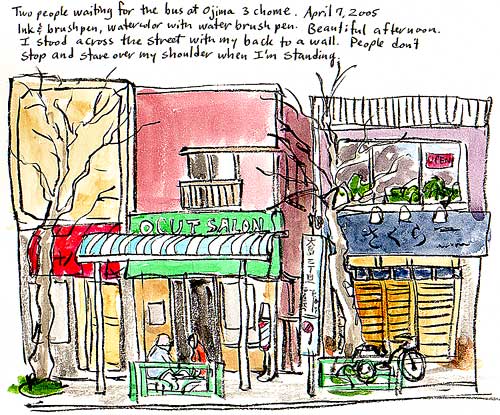 Two people waiting for the bus at Ojima 3 chome. April 7, 2005
Ink & brushpen, watercolor with water brush pen. Beautiful afternoon.
I stood across the street with my back to a wall. People don't
stop and stare over my shoulder when I'm standing.
OPEN
CUT SALON
さくら